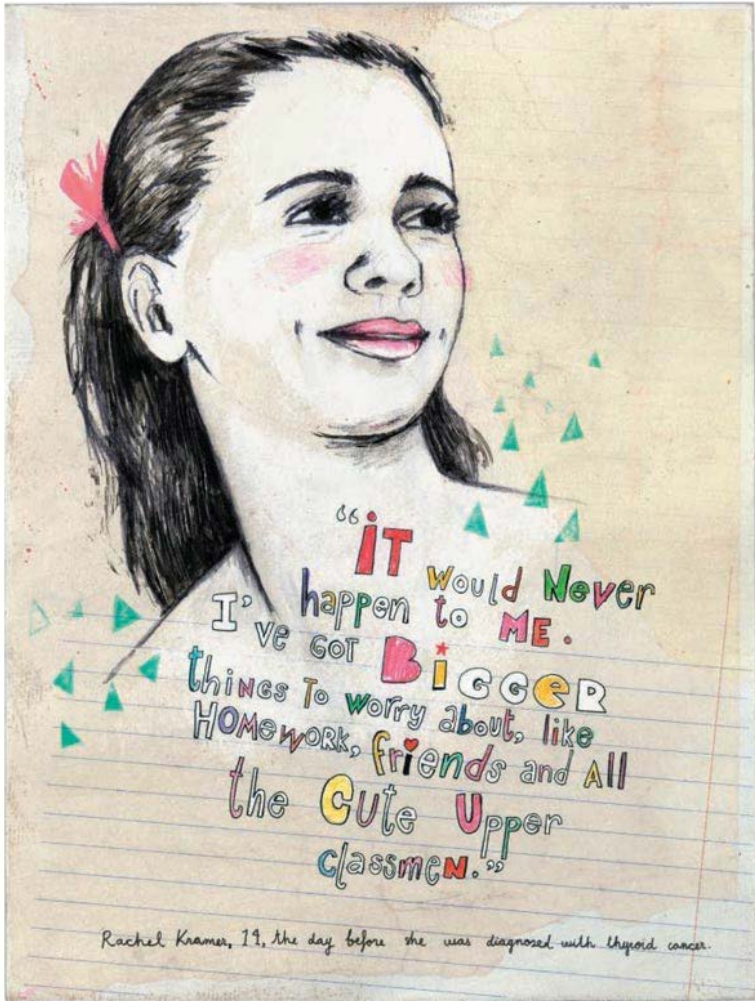 “iT would Never
happen to ME.
I’ve GOT BiGGeR
thiNGS To worry about, like
HOMeWORK, friends and All
the Cute Upper
classmeN.”
Rachel Kramer, 19, the day before she was diagnosed with thyroid cancer.